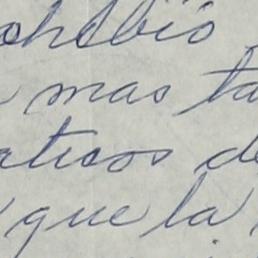 ohibió
mas ta
aticos de
que la